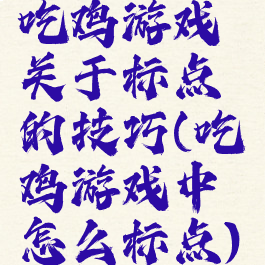 吃鸡游戏
关于标点
的技巧(吃
鸡游戏中
怎么标点)